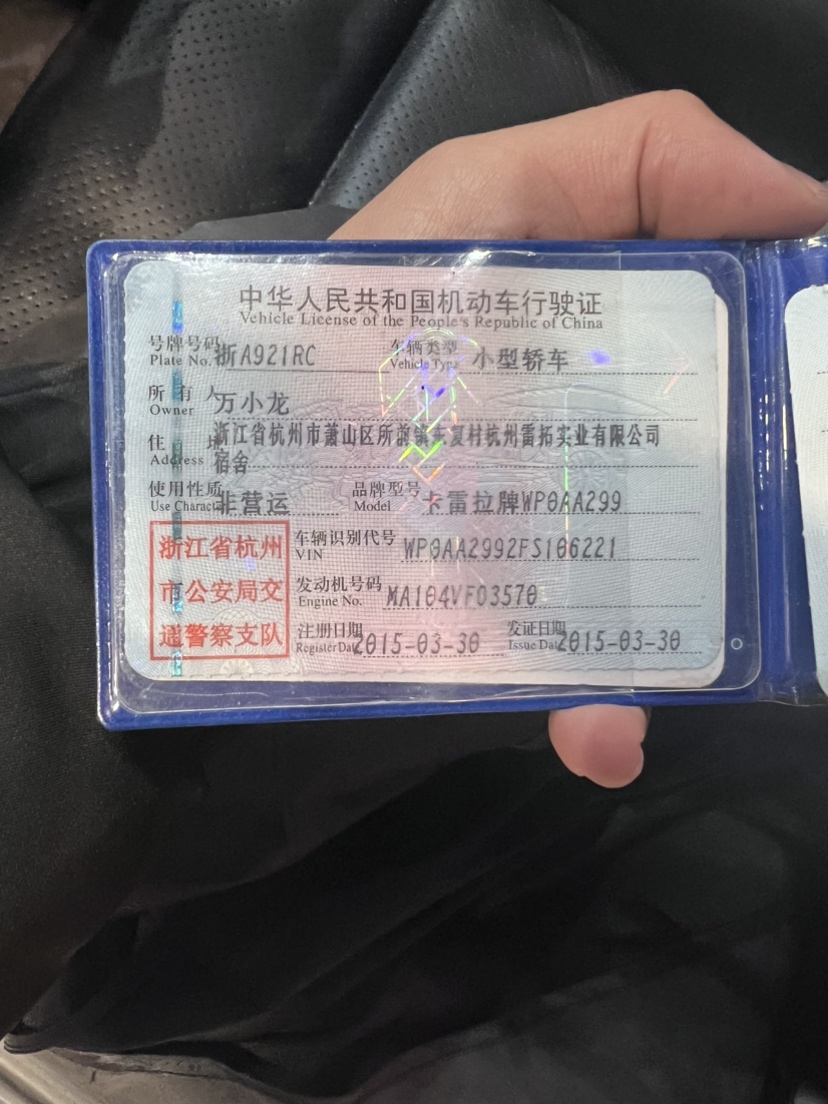 中华人民共和国机动车行驶证
Vehicle License of the People's Republic of China
号牌号码 浙A921RC 车辆类型 小型轿车
Plate No. Vehicle Type
所有人 万小龙
Owner
住址 浙江省杭州市萧山区所前镇东复村杭州雷拓实业有限公司
Address 宿舍
使用性质 非营运 品牌型号 卡雷拉牌WP0AA299
Use Character Model
浙江省杭州 车辆识别代号 WP0AA2992FS106221
VIN
市公安局交 发动机号码 MA104VF03570
Engine No.
通警察支队 注册日期 2015-03-30 发证日期 2015-03-30
Register Date Issue Date